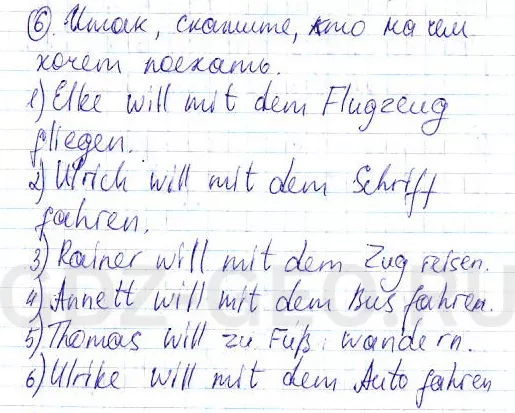 ⑥. Итак, скажите, кто на чем
хочет поехать.
1) Elke will mit dem Flugzeug
fliegen.
2) Ulrich will mit dem Schriff
fahren.
3) Rainer will mit dem Zug reisen.
4) Annett will mit dem Bus fahren.
5) Thomas will zu Fuß wandern.
6) Ulrike will mit dem Auto fahren